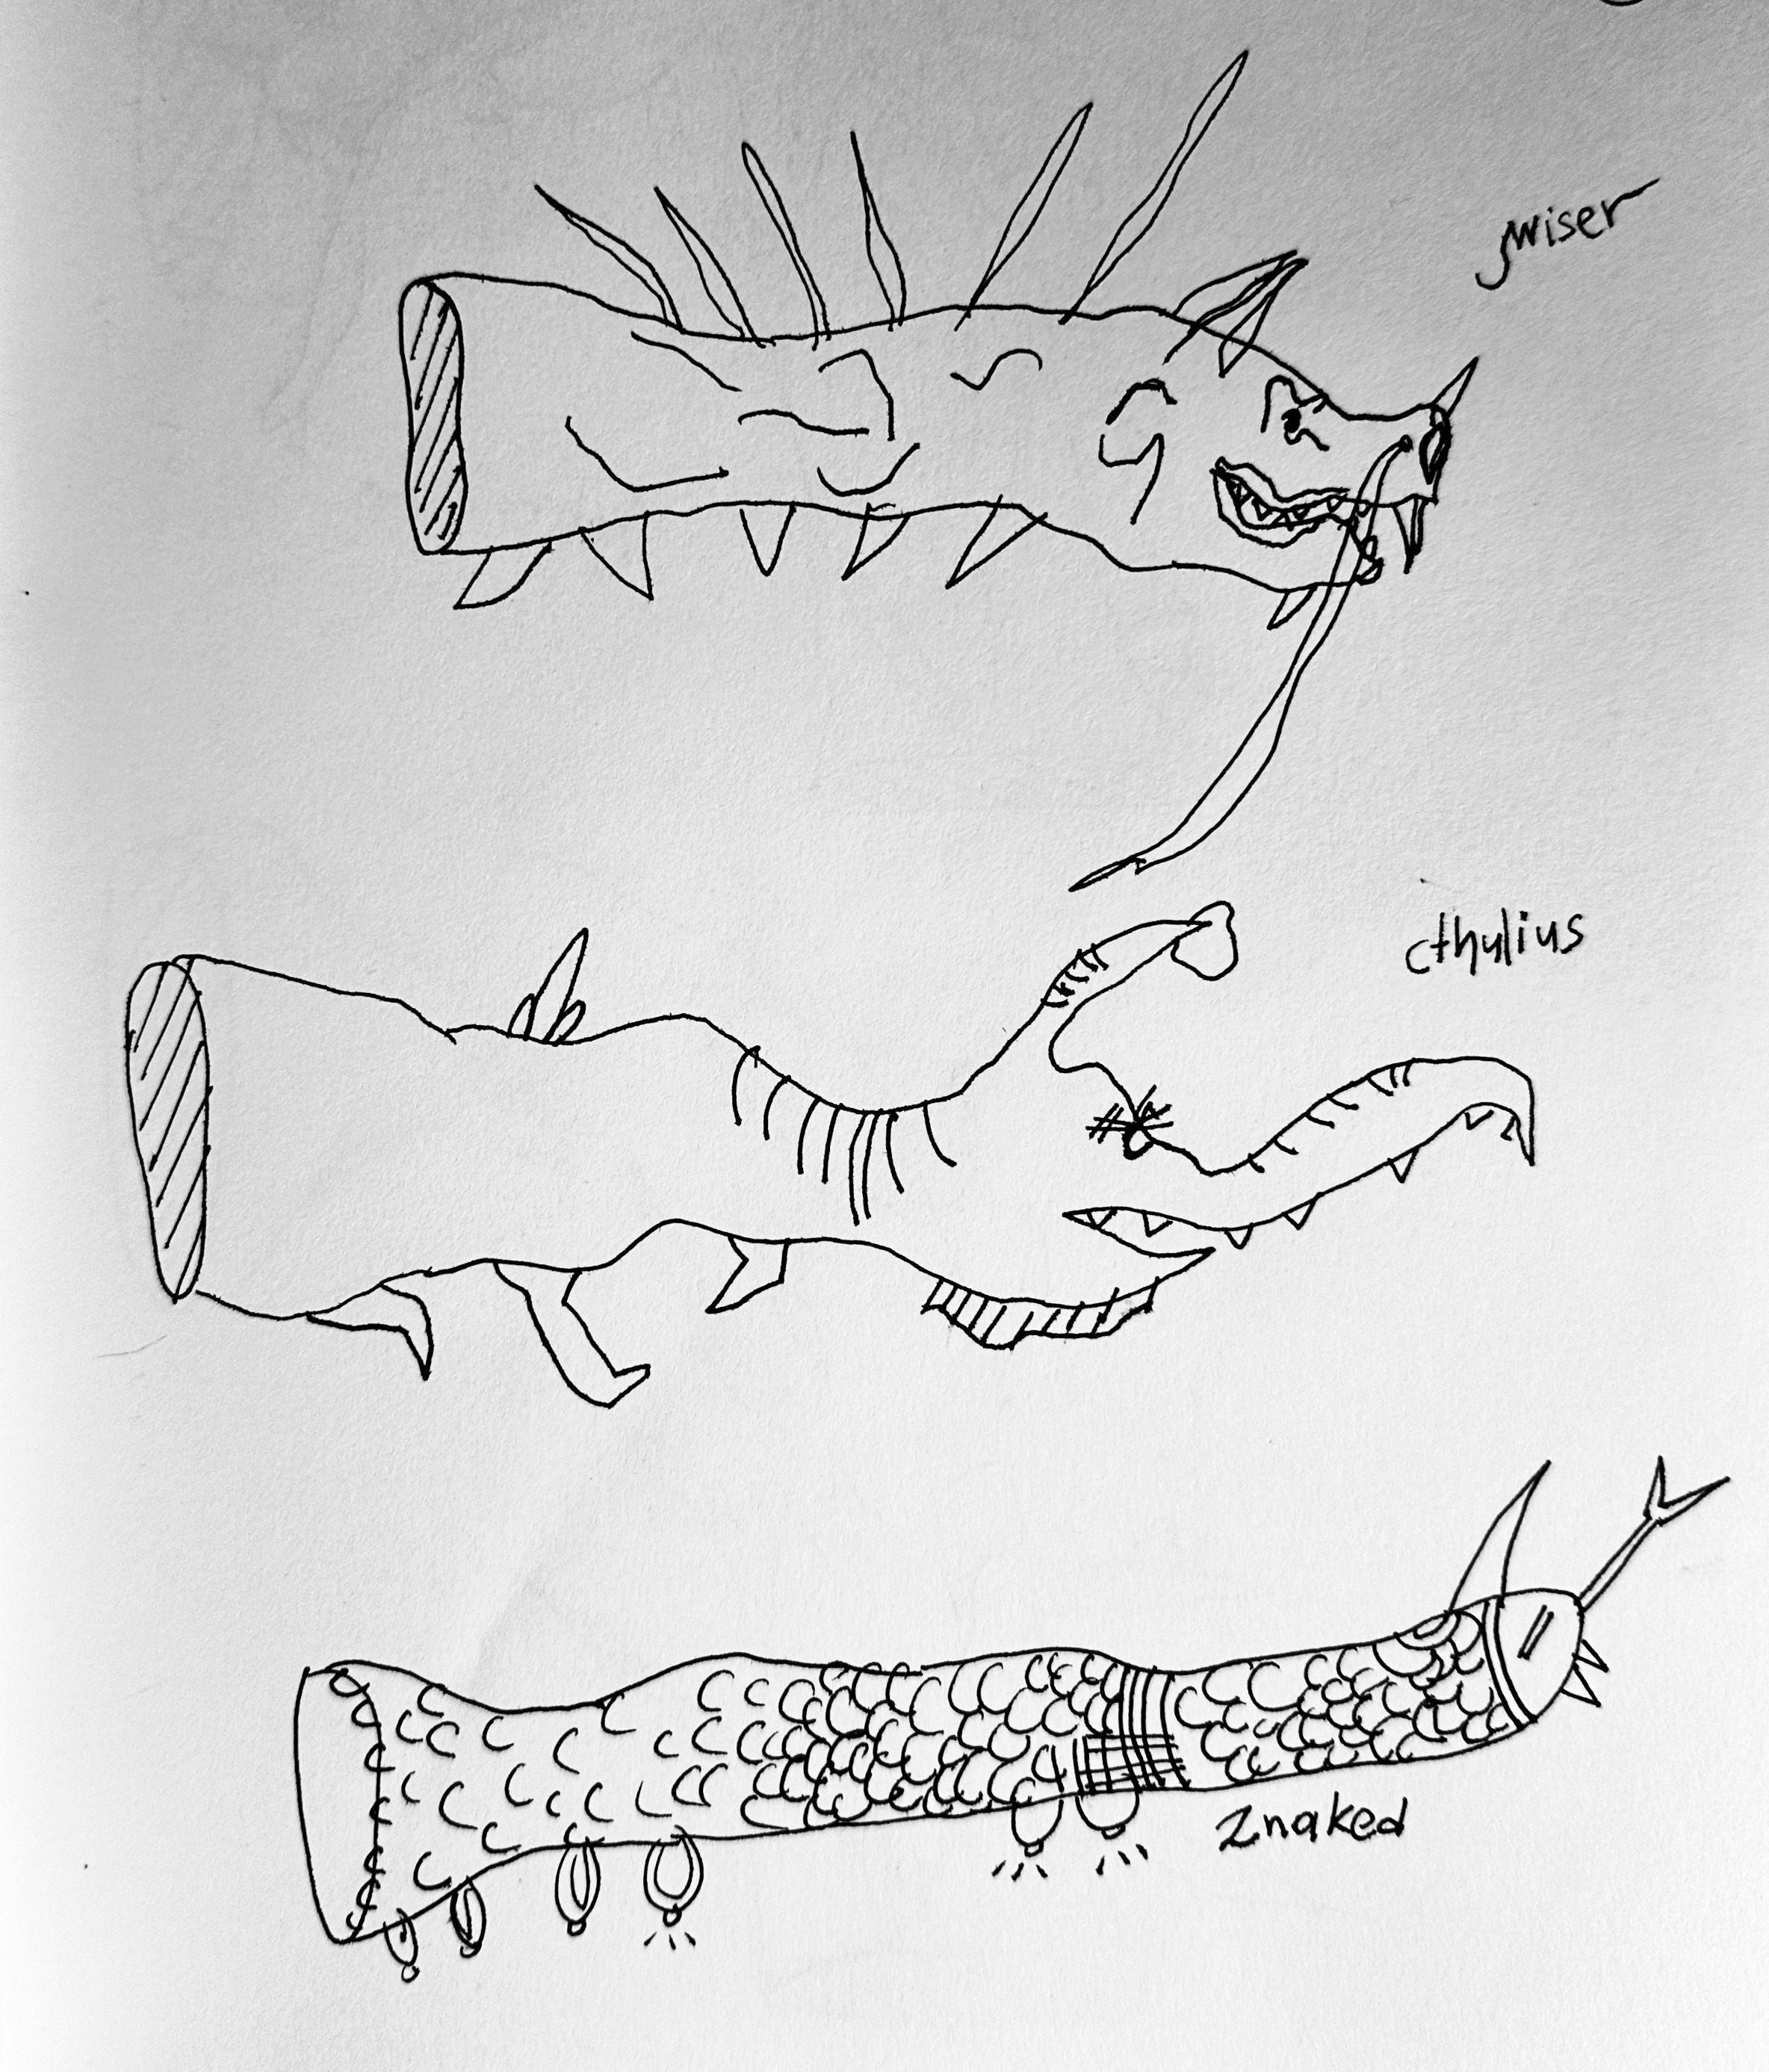 jwiser
cthylius
znaked